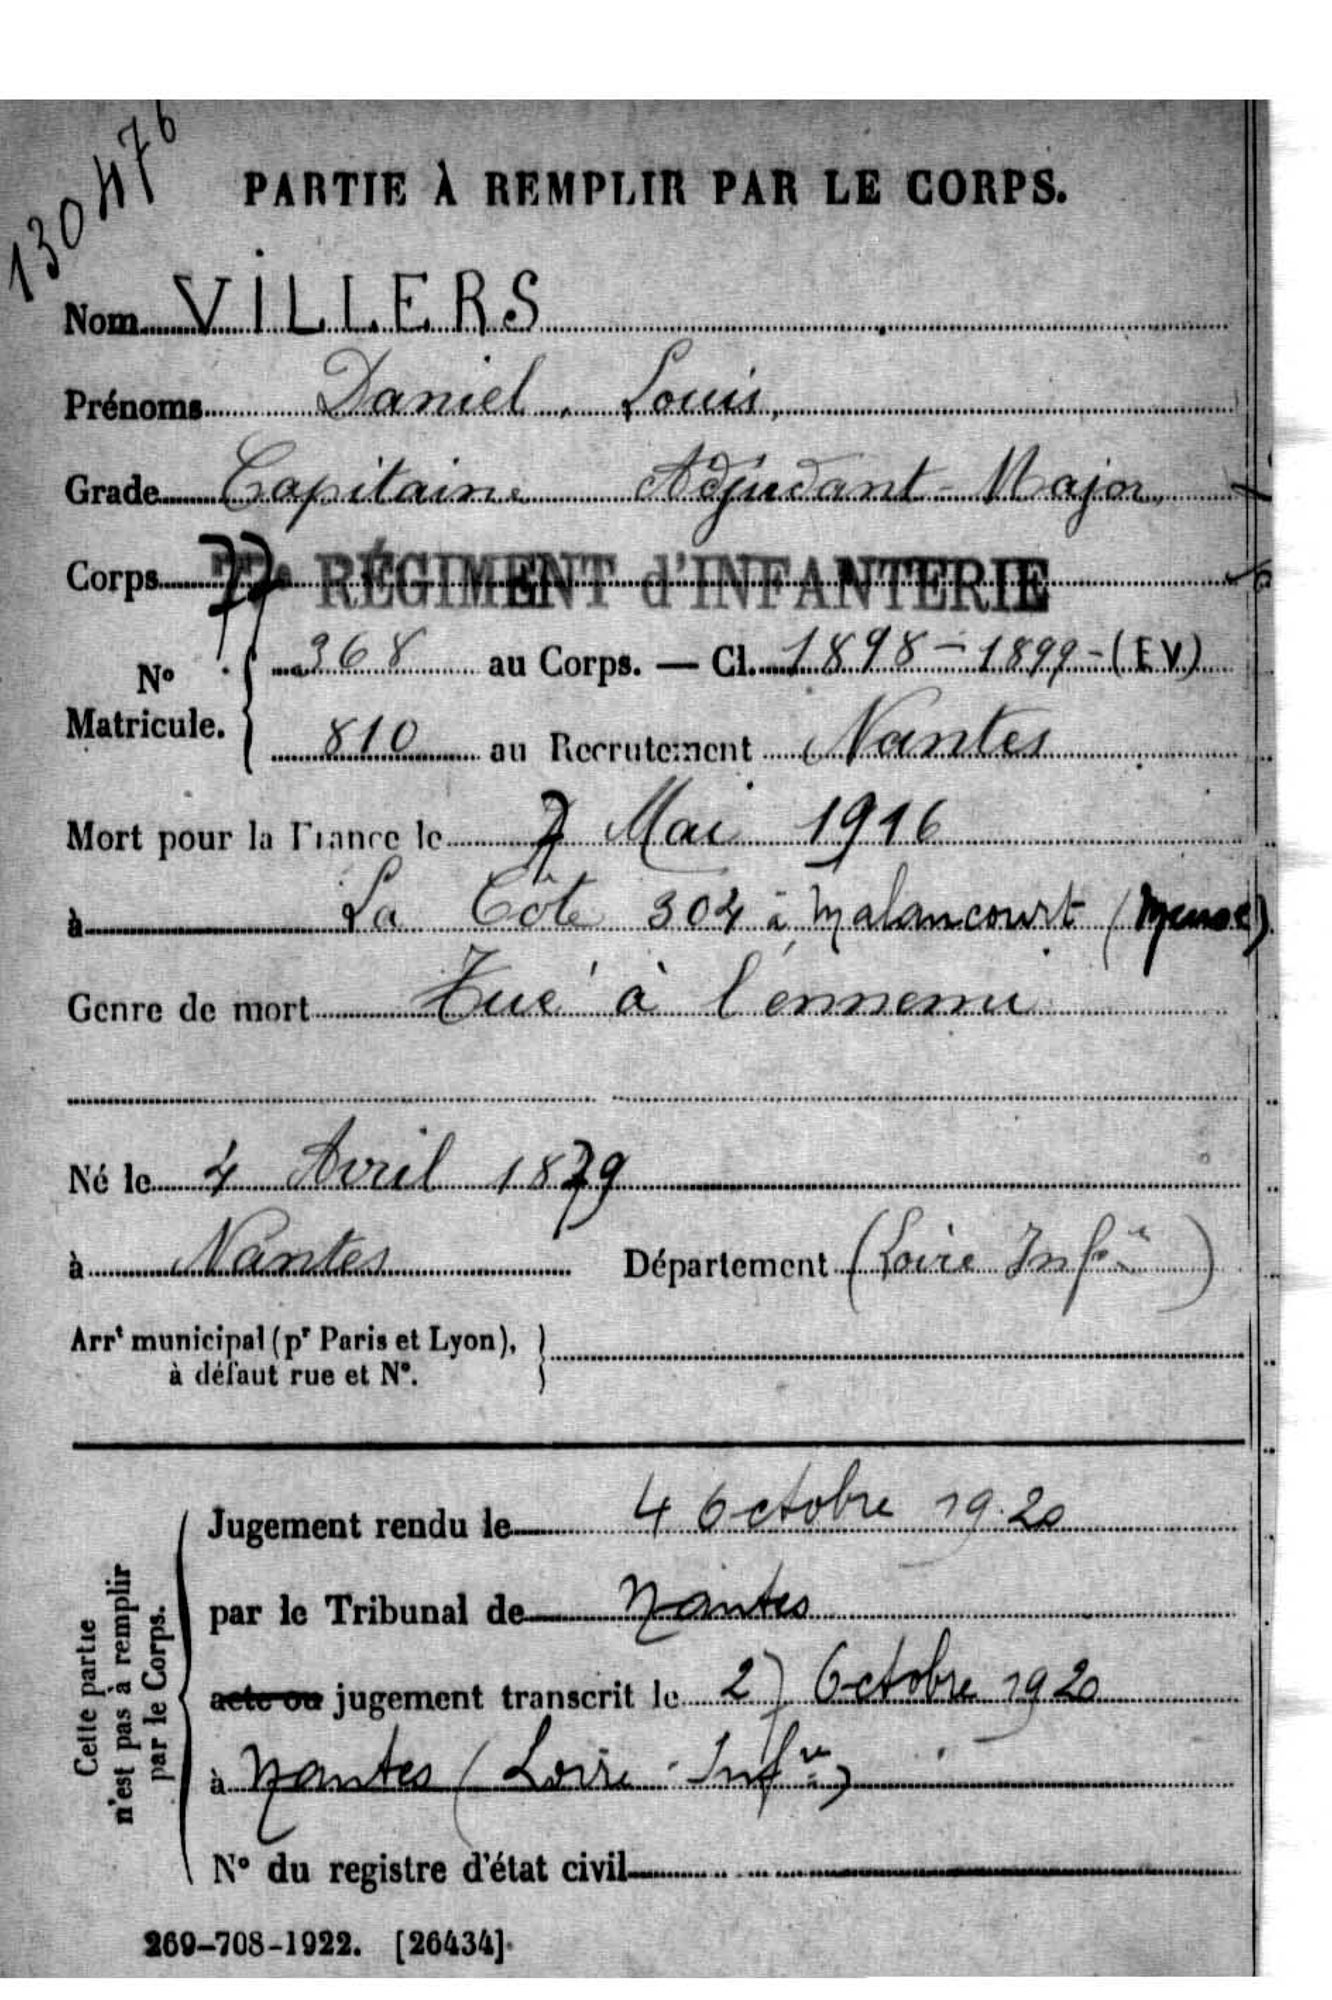 130476
PARTIE À REMPLIR PAR LE CORPS.
Nom VILLERS
Prénoms Daniel, Louis,
Grade Capitaine Adjudant-Major
Corps 77e RÉGIMENT d'INFANTERIE
N° Matricule. 368 au Corps. — Cl. 1898-1899-(EV)
810 au Recrutement Nantes
Mort pour la France le 7 Mai 1916
à La Côte 304 à Malancourt (Meuse)
Genre de mort Tué à l'ennemi
Né le 4 Avril 1879
à Nantes Département (Loire Infre)
Arrt municipal (pr Paris et Lyon),
à défaut rue et N°.
Cette partie
n'est pas à remplir
par le Corps.
Jugement rendu le 4 Octobre 1920
par le Tribunal de Nantes
acte ou jugement transcrit le 27 Octobre 1920
à Nantes (Loire-Infre)
N° du registre d'état civil
269-708-1922. [26434]